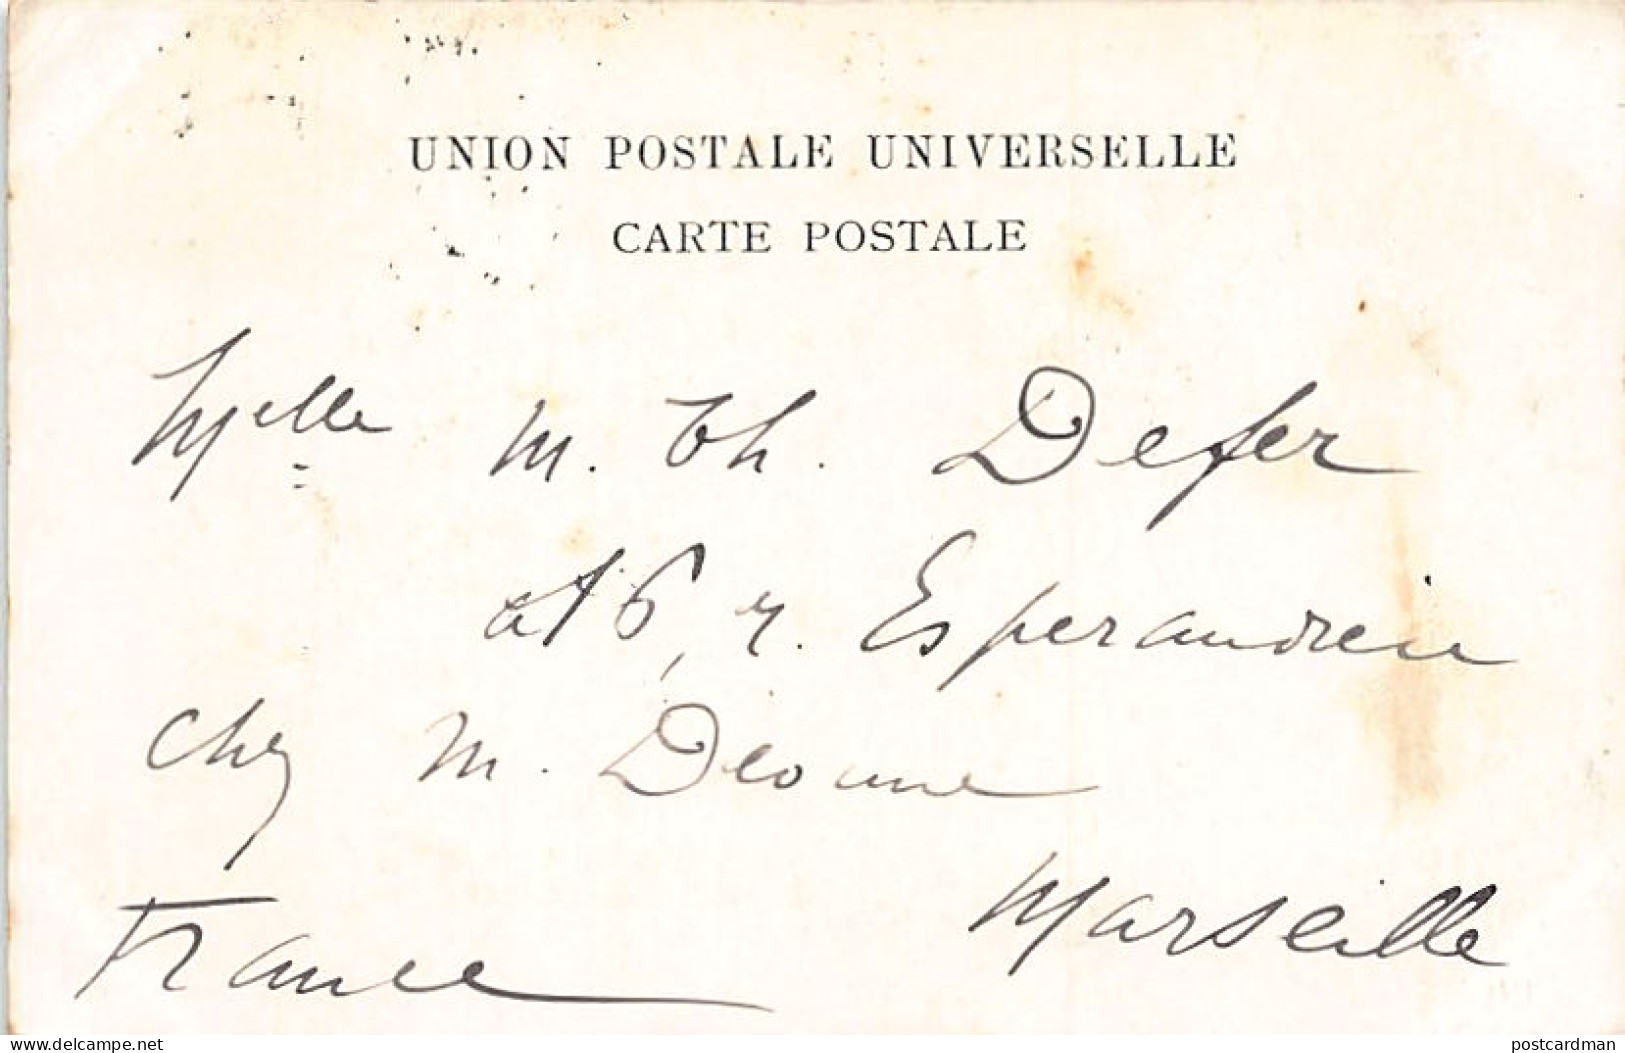 UNION POSTALE UNIVERSELLE
CARTE POSTALE
Mlle M. Th. Defer
r. Esperandieu
chez M.
Marseille
France
delcampe.net
postcardman